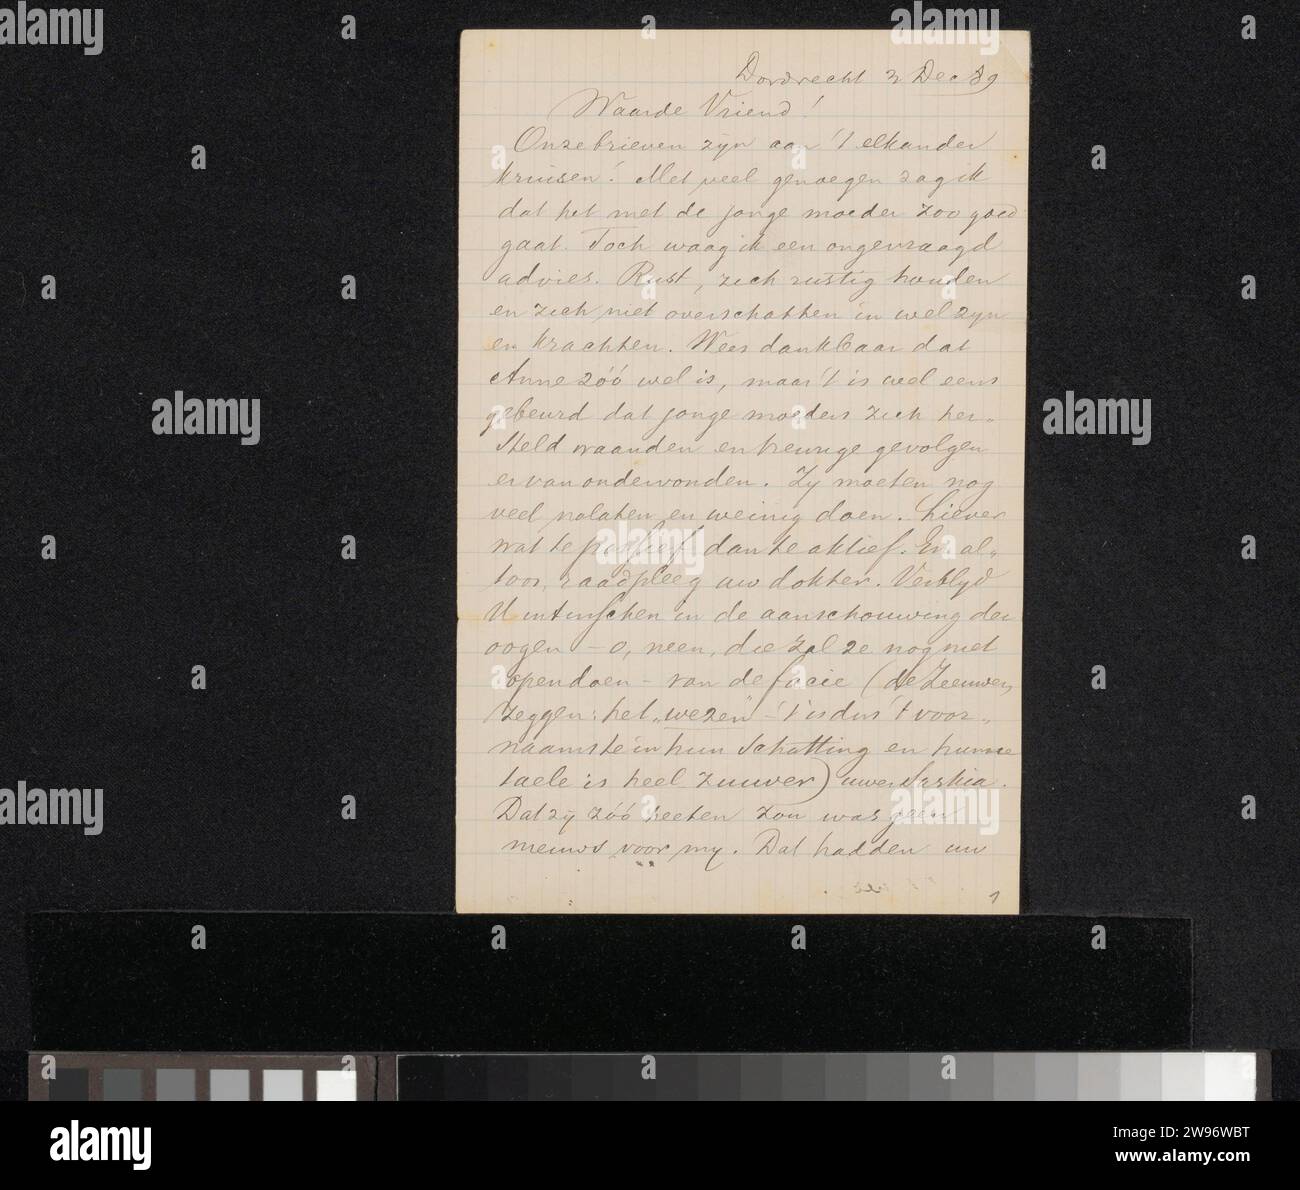 Dordrecht 2 Dec 89
Waarde Vriend!
Onze brieven zyn aan 't elkander
kruisen! Met veel genoegen zag ik
dat het met de jonge moeder zoo goed
gaat. Toch waag ik een ongevraagd
advies. Rust, zich rustig houden
en zich niet overschatten in wel zyn
en krachten. Wees dankbaar dat
Anne zóó wel is, maar 't is wel eens
gebeurd dat jonge moeders zich her-
steld waanden en treurige gevolgen
er van ondervonden. Zy moeten nog
veel nalaten en weinig doen. Liever
wat te passief dan te aktief. En al-
toos, raadpleeg uw dokter. Verblyd
U intusschen in de aanschouwing der
oogen - o, neen, die zal ze nog niet
opendoen - van de facie (de Zeeuwen
zeggen: het "wezen" - 't is dus 't voor-
naamste in hun schatting en hunne
taele is heel zuuver) uwer Saskia.
Dat zy zóó heeten zou was geen
nieuws voor my. Dat hadden uw
1
alamy
a
Image ID: 2W96WBT
www.alamy.com